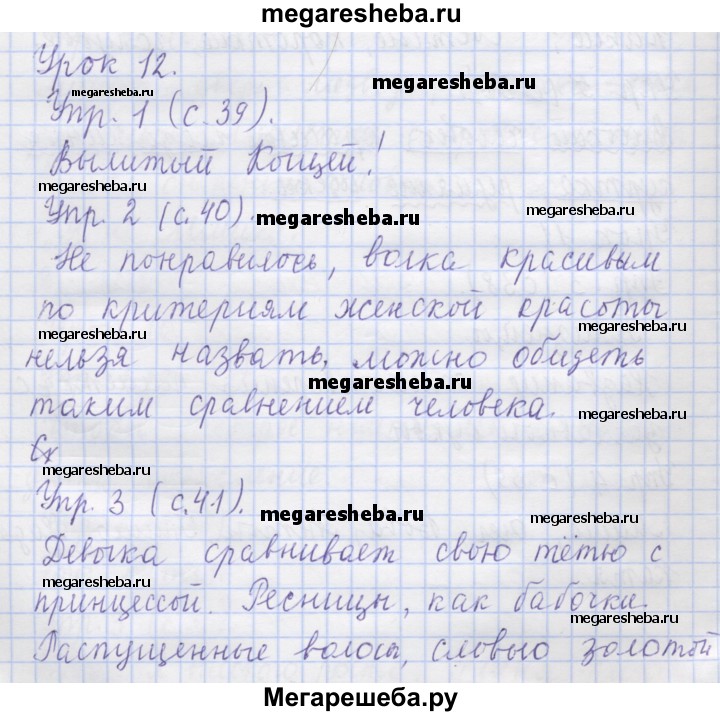 megaresheba.ru
Урок 12.
megaresheba.ru
megaresheba.ru
Упр. 1 (с. 39).
Вылитый Кощей!
megaresheba.ru
Упр. 2 (с. 40).
megaresheba.ru
megaresheba.ru
Не понравилось, волка красивым
по критериям женской красоты
megaresheba.ru
megaresheba.ru
нельзя назвать, можно обидеть
megaresheba.ru
таким сравнением человека.
megaresheba.ru
Упр. 3 (с. 41).
megaresheba.ru
megaresheba.ru
Девочка сравнивает свою тётю с
megaresheba.ru
принцессой. Ресницы, как бабочки.
megaresheba.ru
Распущенные волосы, словно золотой
Мегарешеба.ру